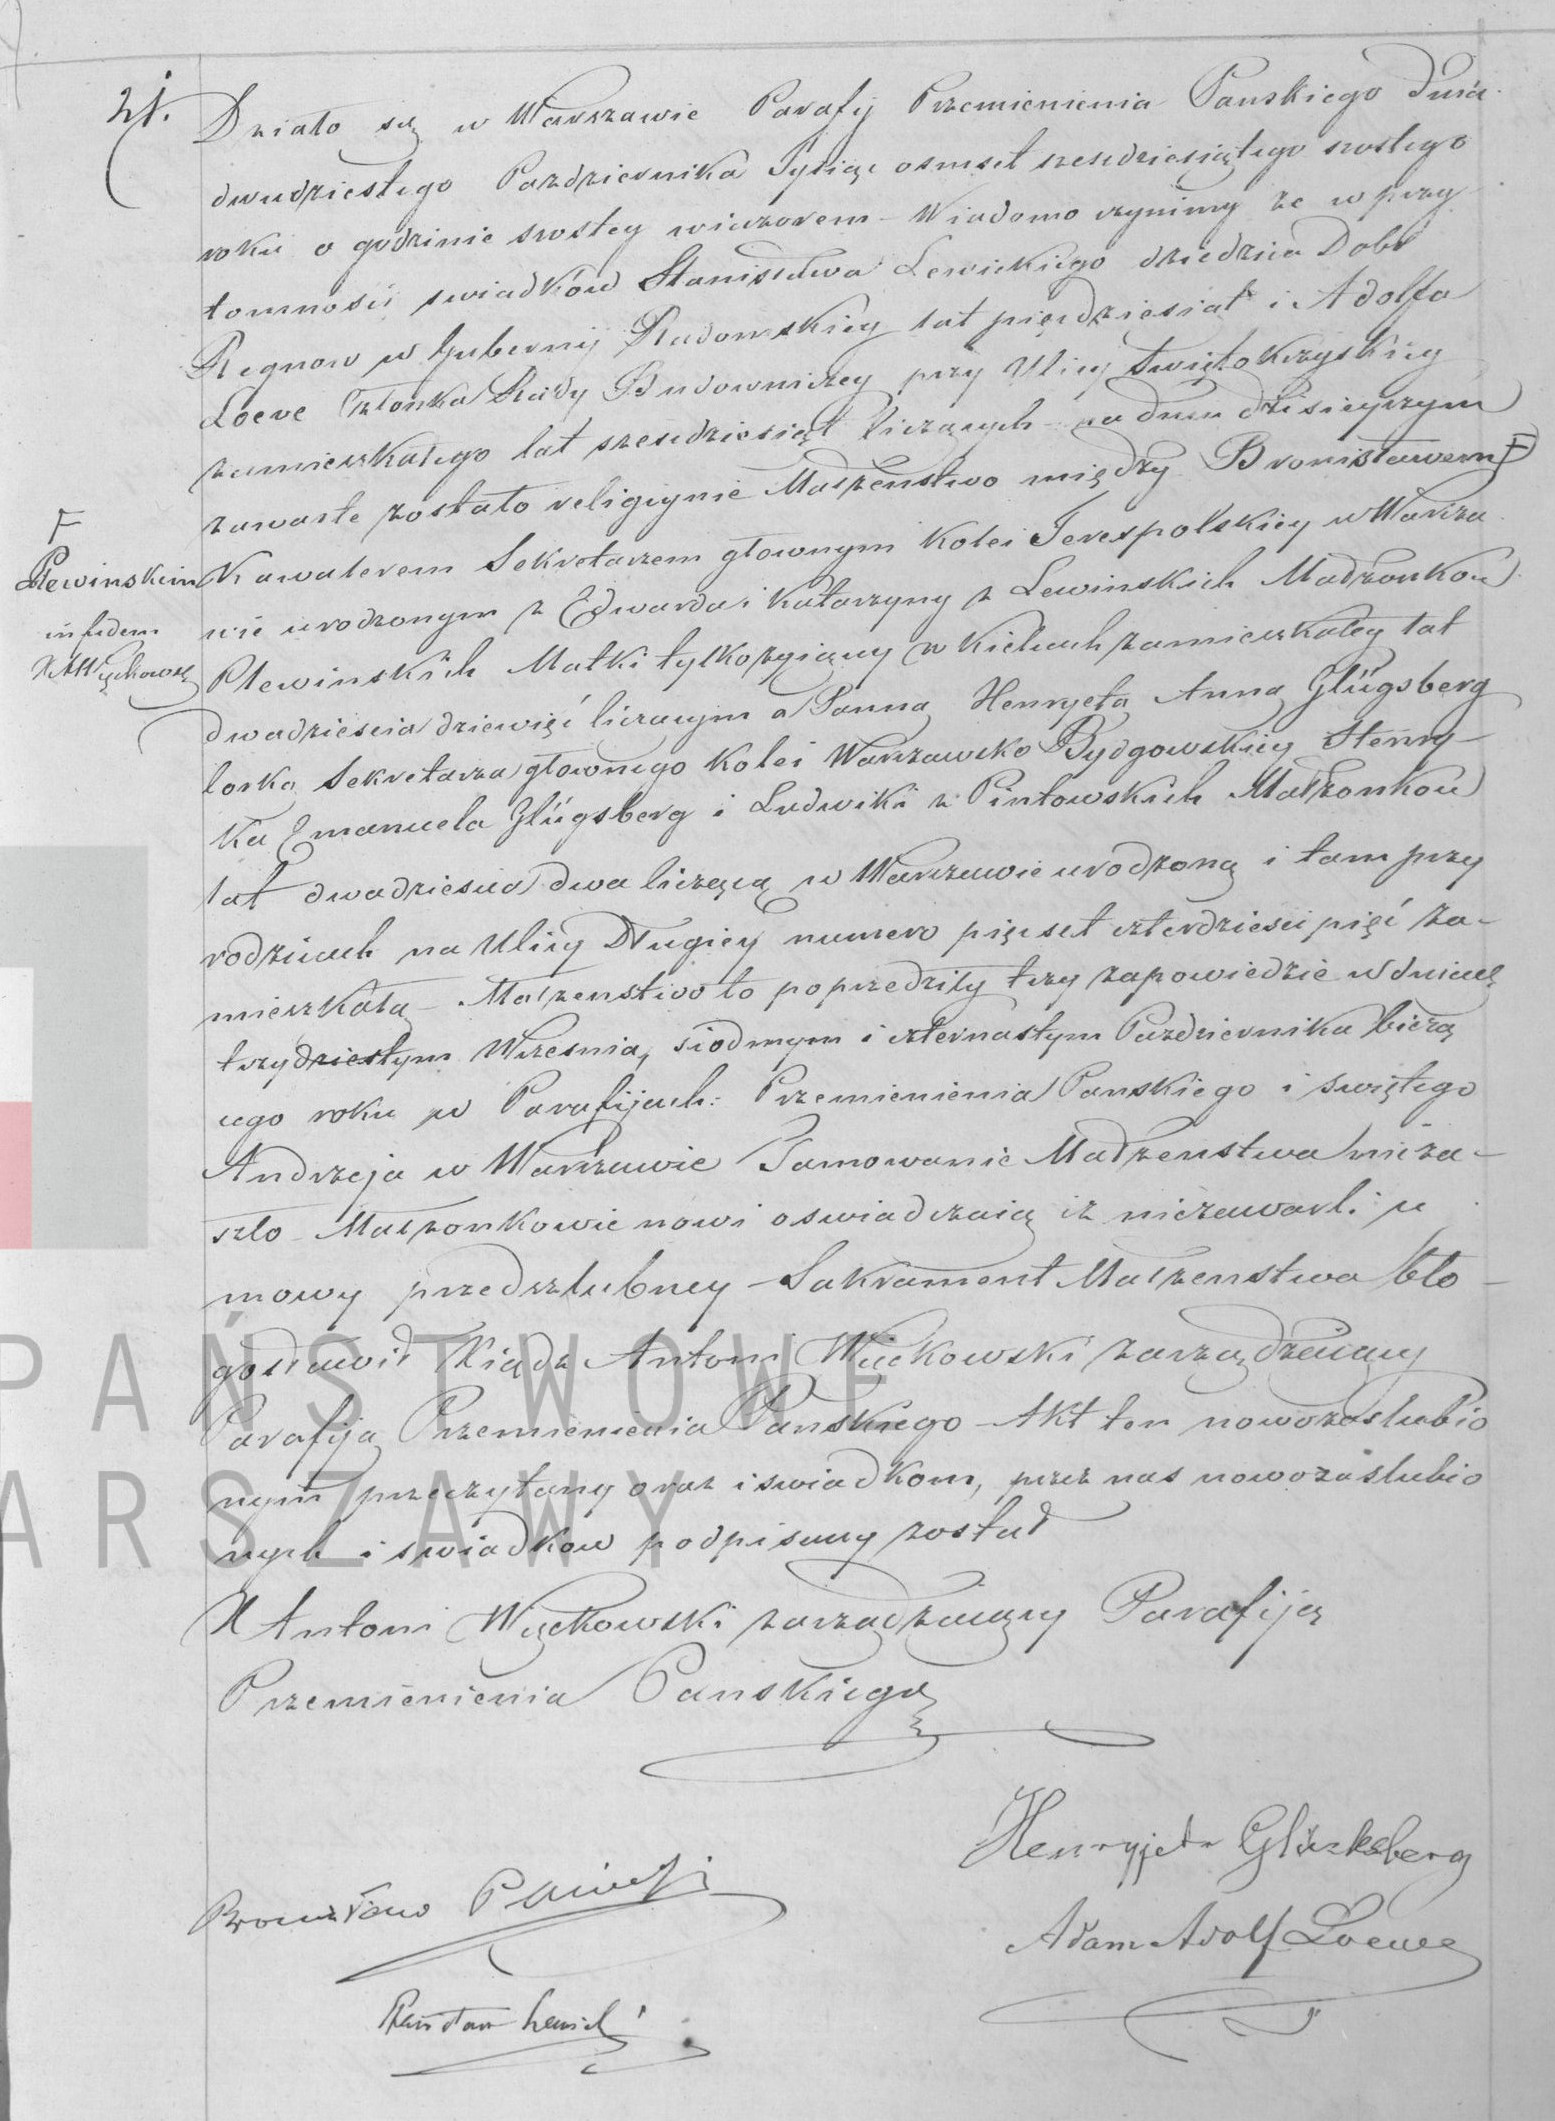 21.
Działo się w Warszawie Parafy Przemienienia Panskiego dnia
dwudziestego Pazdziernika Tysiąc osmset szesdziesiątego szostego
roku o godzinie szostey wieczorem – Wiadomo czynimy ze w przy
tomnosci swiadków Stanisława Lewickiego dziedzica Dobr
Regnow w Gubernij Radomskiey lat pięcdziesiąt i Adolfa
Loeve Członka Rady Budowniczey przy Ulicy Swiętokrzyskiey
zamieszkałego lat szescdziesiąt liczących – na dniu dzisieyszym
zawarte zostało religiynie Małzenstwo między Bronisławem F
F
Plewinskim
in fidem
X A Więckowski
Kawalerem Sekretarzem głownym Kolei Terespolskiey w Warsza
wie urodzonym z Edwarda i Katarzyny z Lewinskich Małżonkow
Plewinskich Matki tylko zyiącey w Kielcach zamieszkałey lat
dwadziescia dziewięć liczącym a Panną Henryeta Anną Glügsberg
corką Sekretarza głownego Kolei Warszawsko Bydgowskiey Henry–
ka Emanuela Glügsberg i Ludwiki z Pintowskich Małżonkow
lat dwadziescia dwa liczącą w Warszawie urodzoną i tam przy
rodzicach na Ulicy Długiey numero pięcset czterdziesci pięć za–
mieszkałą – Małzenstwo to poprzedziły trzy zapowiedzie w dniach
trzydziestym Wrzesnia, siodmym i czternastym Pazdziernika bieżą
cego roku w Parafijach: Przemienienia Panskiego i swiętego
Andrzeja w Warszawie Tamowanie Małzenstwa nie za–
szło – Małzonkowie nowi oswiadczaią iz nie zawarli u
mowy przedszlubney – Sakrament Małzenstwa bło–
gosławił Xiądz Antoni Więckowski zarządzaiący
Parafiją Przemienienia Panskiego – Akt ten nowozaslubio
nym przeczytany oraz i swiadkom, przez nas nowozaslubio
nych i swiadkow podpisany został
X Antoni Więckowski zarządzaiący Parafiją
Przemienienia Panskiego
Henryjeta Glücksberg
Bronisław Plewiński
Adam Adolf Loewe
Stanisław Lewicki
PAŃSTWOWE
ARSZAWY